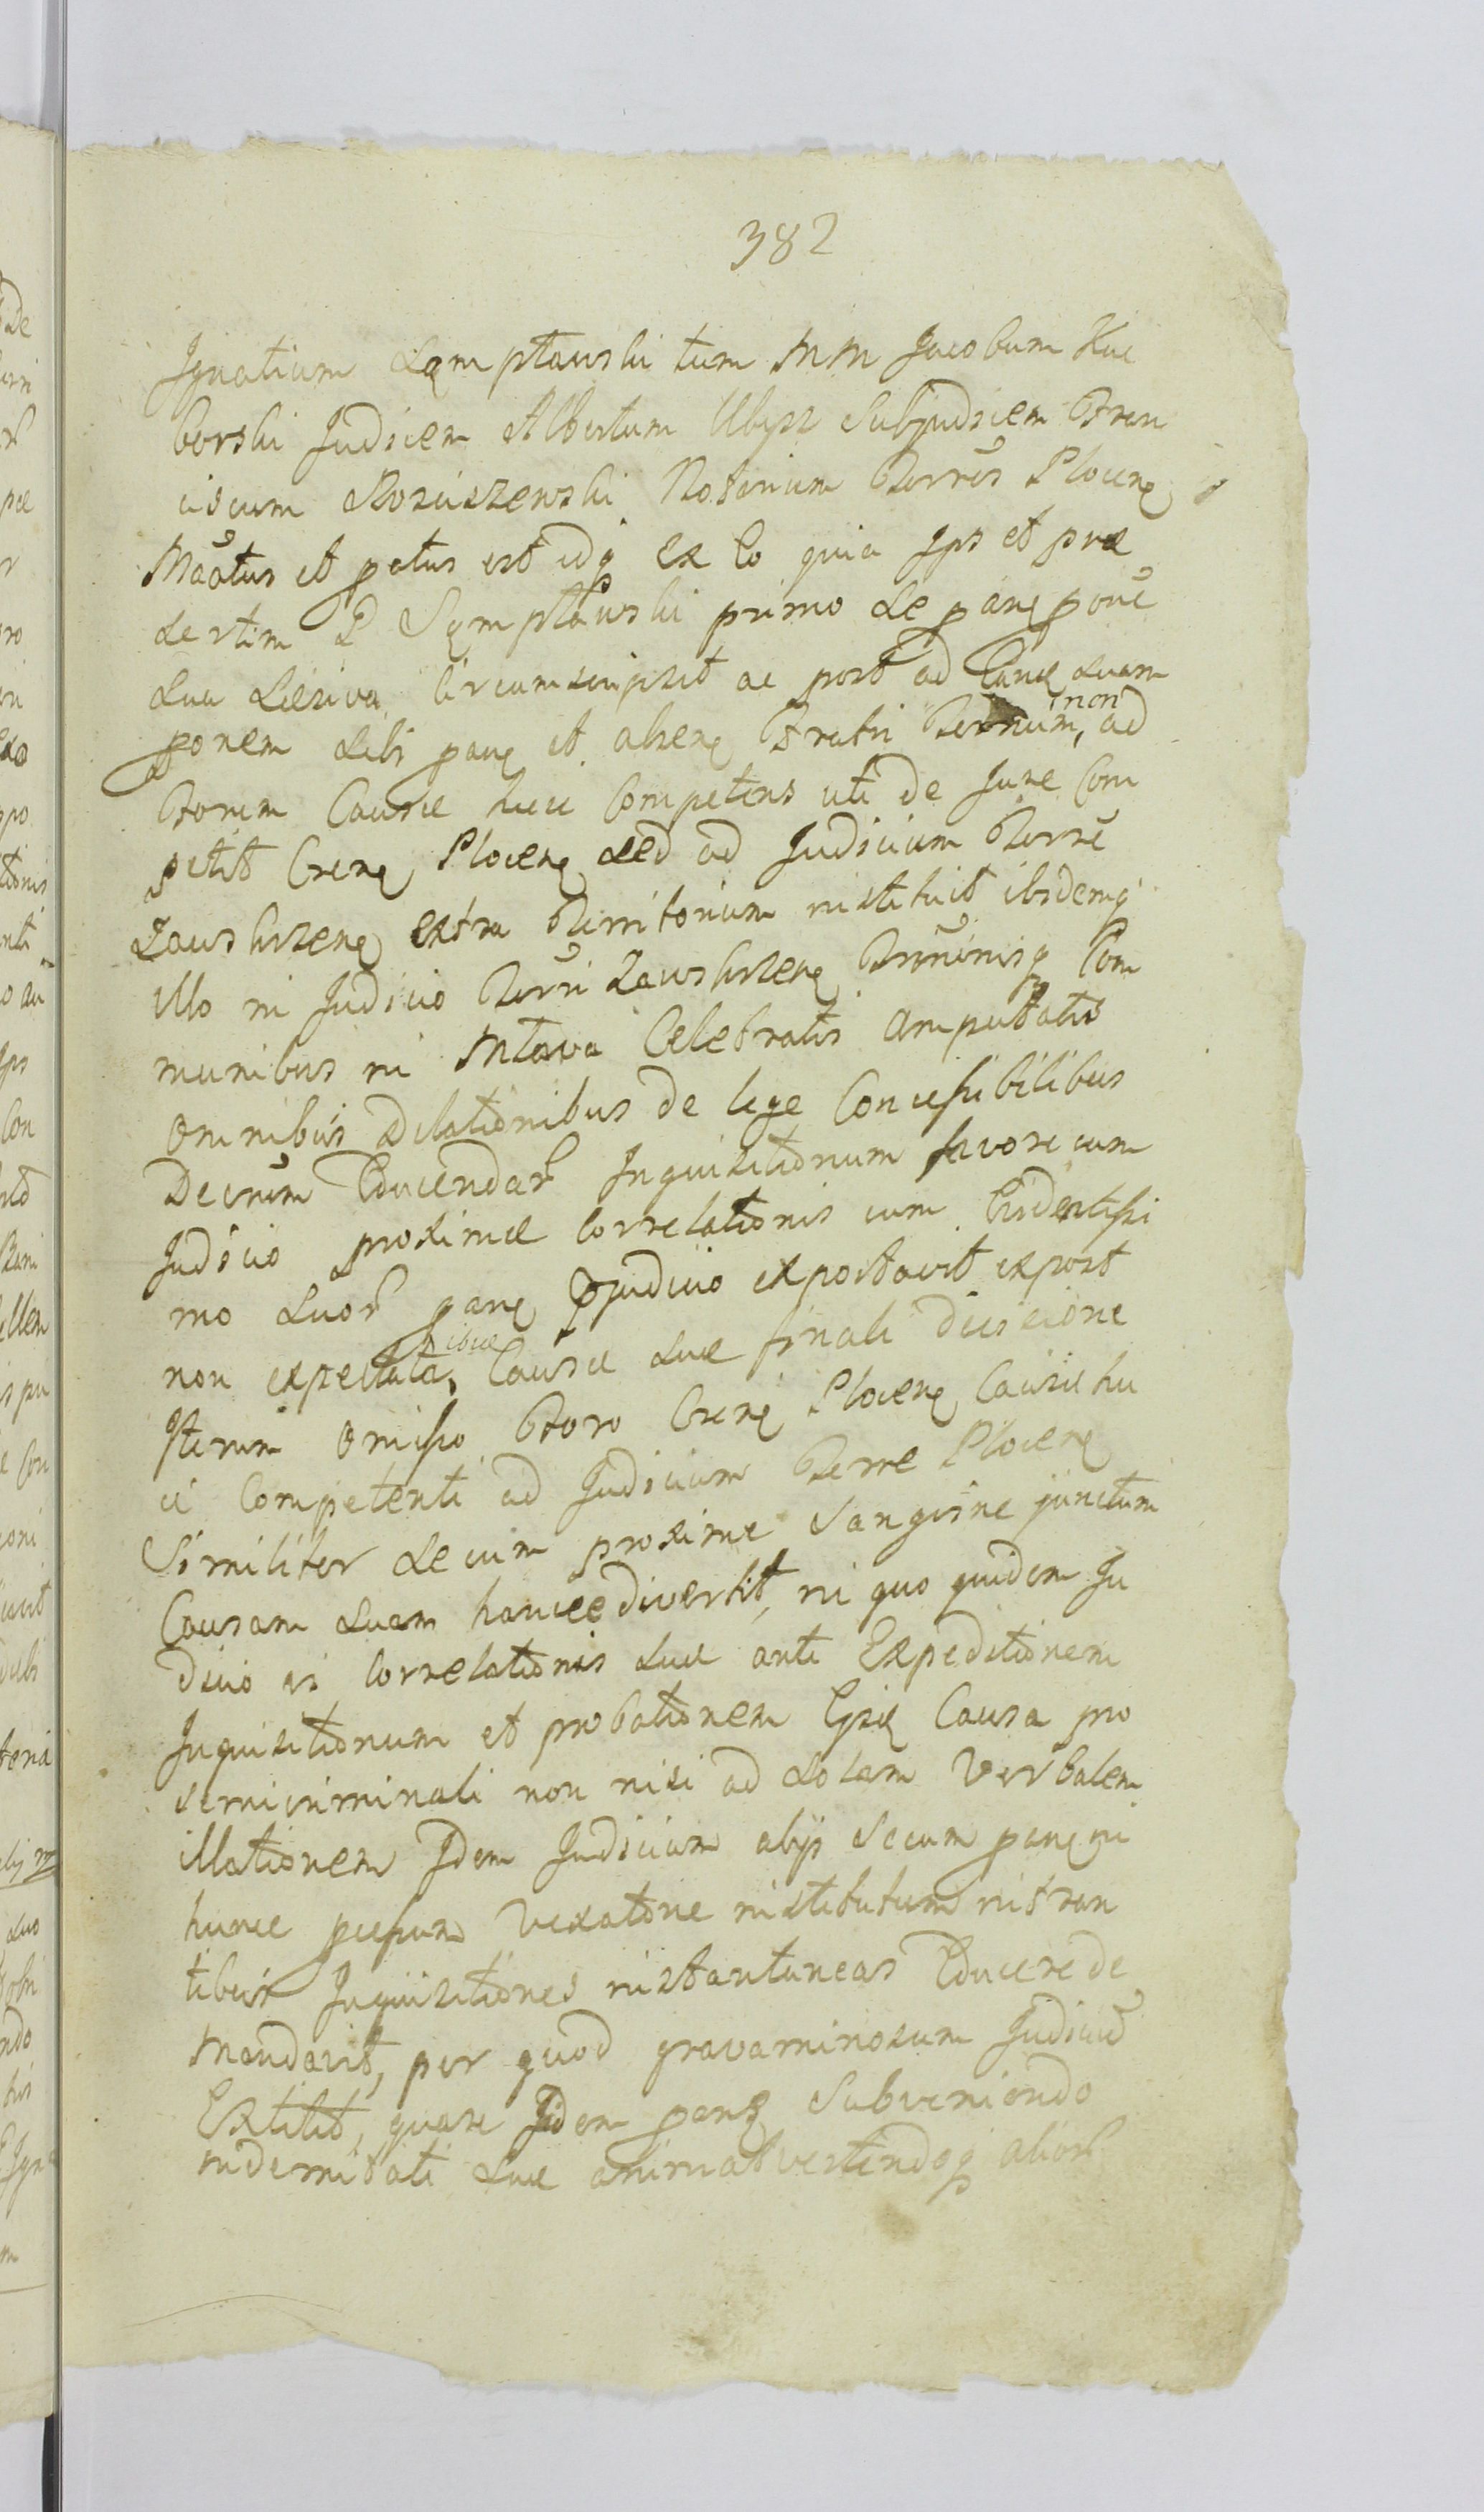 382
Ignatium Sęmpławski tum MM Jacobum Kuc
borski Judicem Albertum Ubysz Subjudicem Fran
ciscum Rosciszewski Notarium Terrēs Plocen
Māatus et patus est idq ex Eo quia Ips et præ
sertim P Sęmpławski primo se pane
sua Lesiva Circumscripsit ac post ad suam
ponem sibi pane et absene Fratri Termum, non ad
Forum Causæ huic Competens uti de Jure Com
petit Crens Plocens sed ad Judicium Terrē
Zawskrzens extra Territorium instituit ibidemq
illo in Judicio Terri Zawskrzens Terminisq Com
munibus in Mława Celebratis amputatis
omnibus Dilationibus de lege Concessibilibus
Decrum Educendar Inquisitionum favore cum
Judicio proximæ Correlationis cum Evidentissi
mo suor pane Pjudicio exportavit expost
non expectata ibidem Causæ suæ finali decisione
Iterum omisso Foro Crens Plocens Causæ hu
ic Competenti ad Judicium Terre Plocens
Similiter secum proxime Sanguine junctum
Causam suam hancce divertit, in quo quidem Ju
dicio vi Correlationis suæ ante Expeditionem
Inquisitionum et probationem Causa pro
semicriminali non nisi ad solam Verbalem
illationem Idem Judicium alijs Secum pane in
hunce passum vexatione institutum intran
tibus Inquisitiones instantaneas Educere de
mandavit, per quod gravaminosum Judiciū
Extitit, quare Idem pans Subveniendo
indemnitati suæ animadvertendoq alior